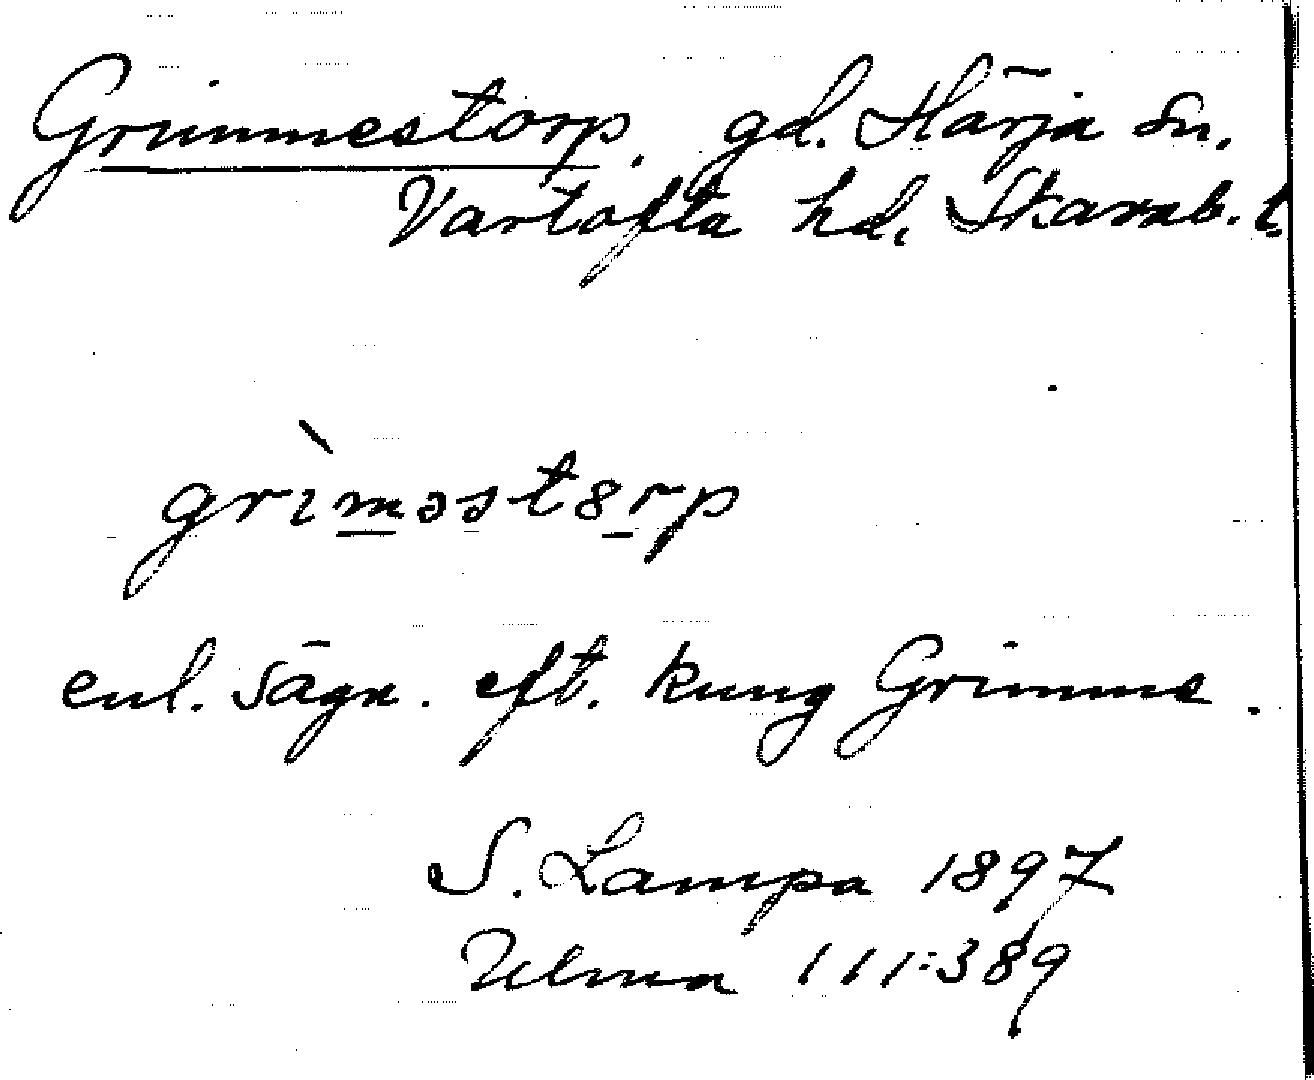 Grimmestorp. gd. Härja sn.
Vartofta hd. Skarab. l.
grìməstȣrp
enl. sägn. eft. kung Grimme.
S. Lampa 1897
Ulma 111:389